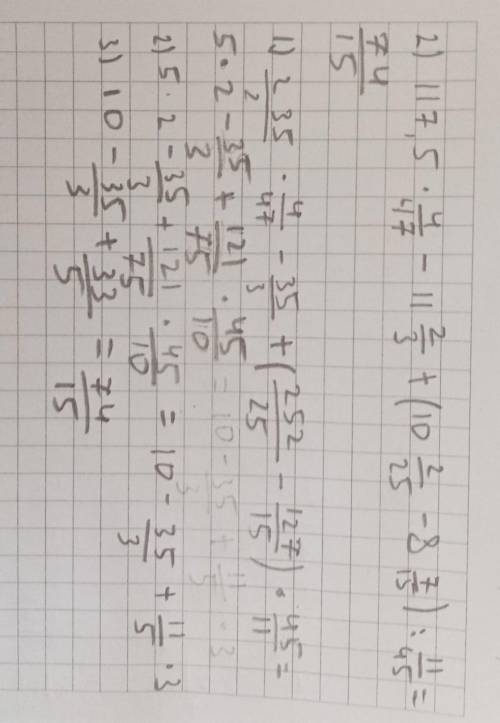 2) 117,5 · 4/47 - 11 2/3 + (10 2/25 - 8 7/15) : 11/45 =
74/15
1) 235/2 · 4/47 - 35/3 + (252/25 - 127/15) · 45/11 =
5·2 - 35/3 + 121/75 · 45/10 = 10 - 35/3 + 11/5 · 3
2) 5·2 - 35/3 + 121/75 · 45/10 = 10 - 35/3 + 11/5 · 3
3) 10 - 35/3 + 33/5 = 74/15